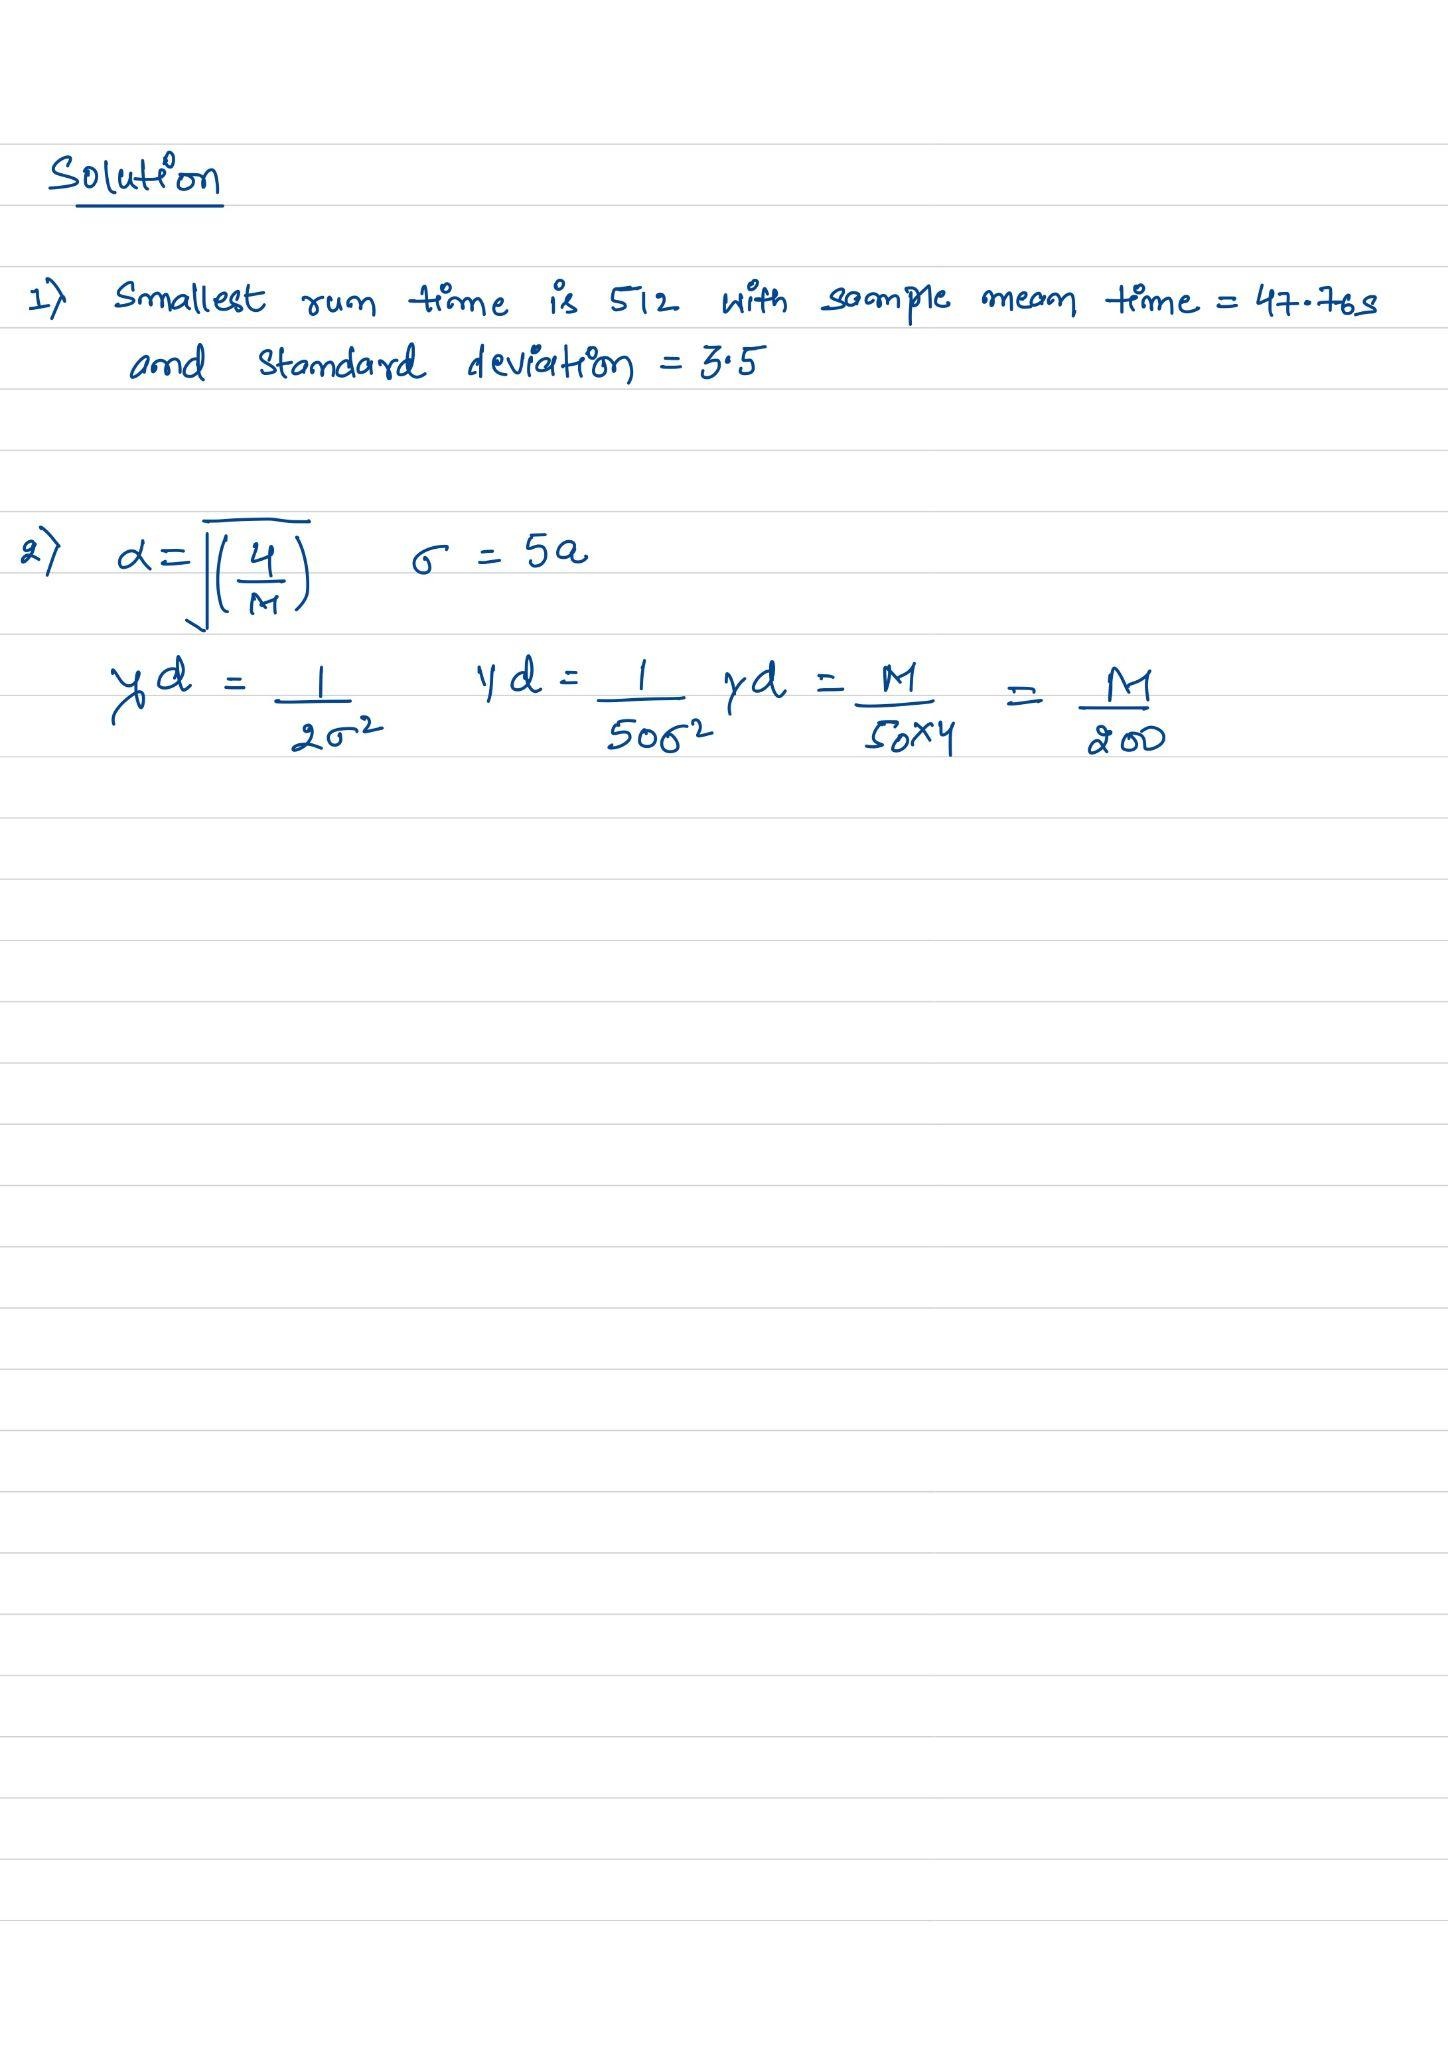 Solution
1) Smallest run time is 512 with sample mean time = 47.76s
and standard deviation = 3.5
2) α = √(4/M) σ = 5a
γd = 1/2σ² γd = 1/50σ² γd = M/50×4 = M/200